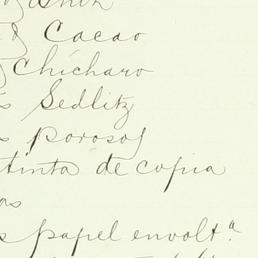 Cacao
Chícharo
s Sedlitz
s porosos
tinta de copia
as
s papel envolt.ª